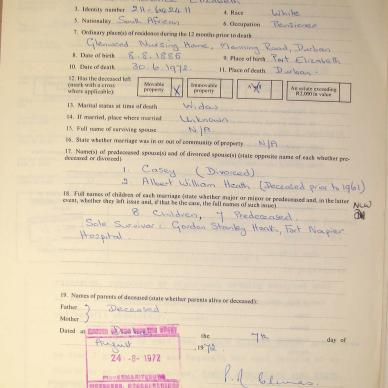 3. Identity number
4. Race White
5. Nationality South African
6. Occupation Pensioner
7. Ordinary place(s) of residence during the 12 months prior to death
Glenwood Nursing Home, Manning Road, Durban
8. Date of birth 8.8.1886
9. Place of birth Port Elizabeth
10. Date of death 30.6.1972
11. Place of death Durban
12. Has the deceased left (mark with a cross where applicable)
Movable property X
Immovable property
An estate exceeding R2,000 in value
13. Marital status at time of death Widow
14. If married, place where married Unknown
15. Full name of surviving spouse N/A
16. State whether marriage was in or out of community of property N/A
17. Name(s) of predeceased spouse(s) and of divorced spouse(s) (state opposite name of each whether predeceased or divorced)
1. Casey (Divorced)
2. Albert William Heath (Deceased prior to 1961)
18. Full names of children of each marriage (state whether major or minor or predeceased and, in the latter event, whether they left issue and, if that be the case, the full names of such issue)
8 Children, 7 Predeceased.
Sole Survivor: Gordon Stanley Heath, Fort Napier
Hospital.
19. Names of parents of deceased (state whether parents alive or deceased):
Father } Deceased
Mother
Dated at
the 7th day of
August 1972.
24-8-1972